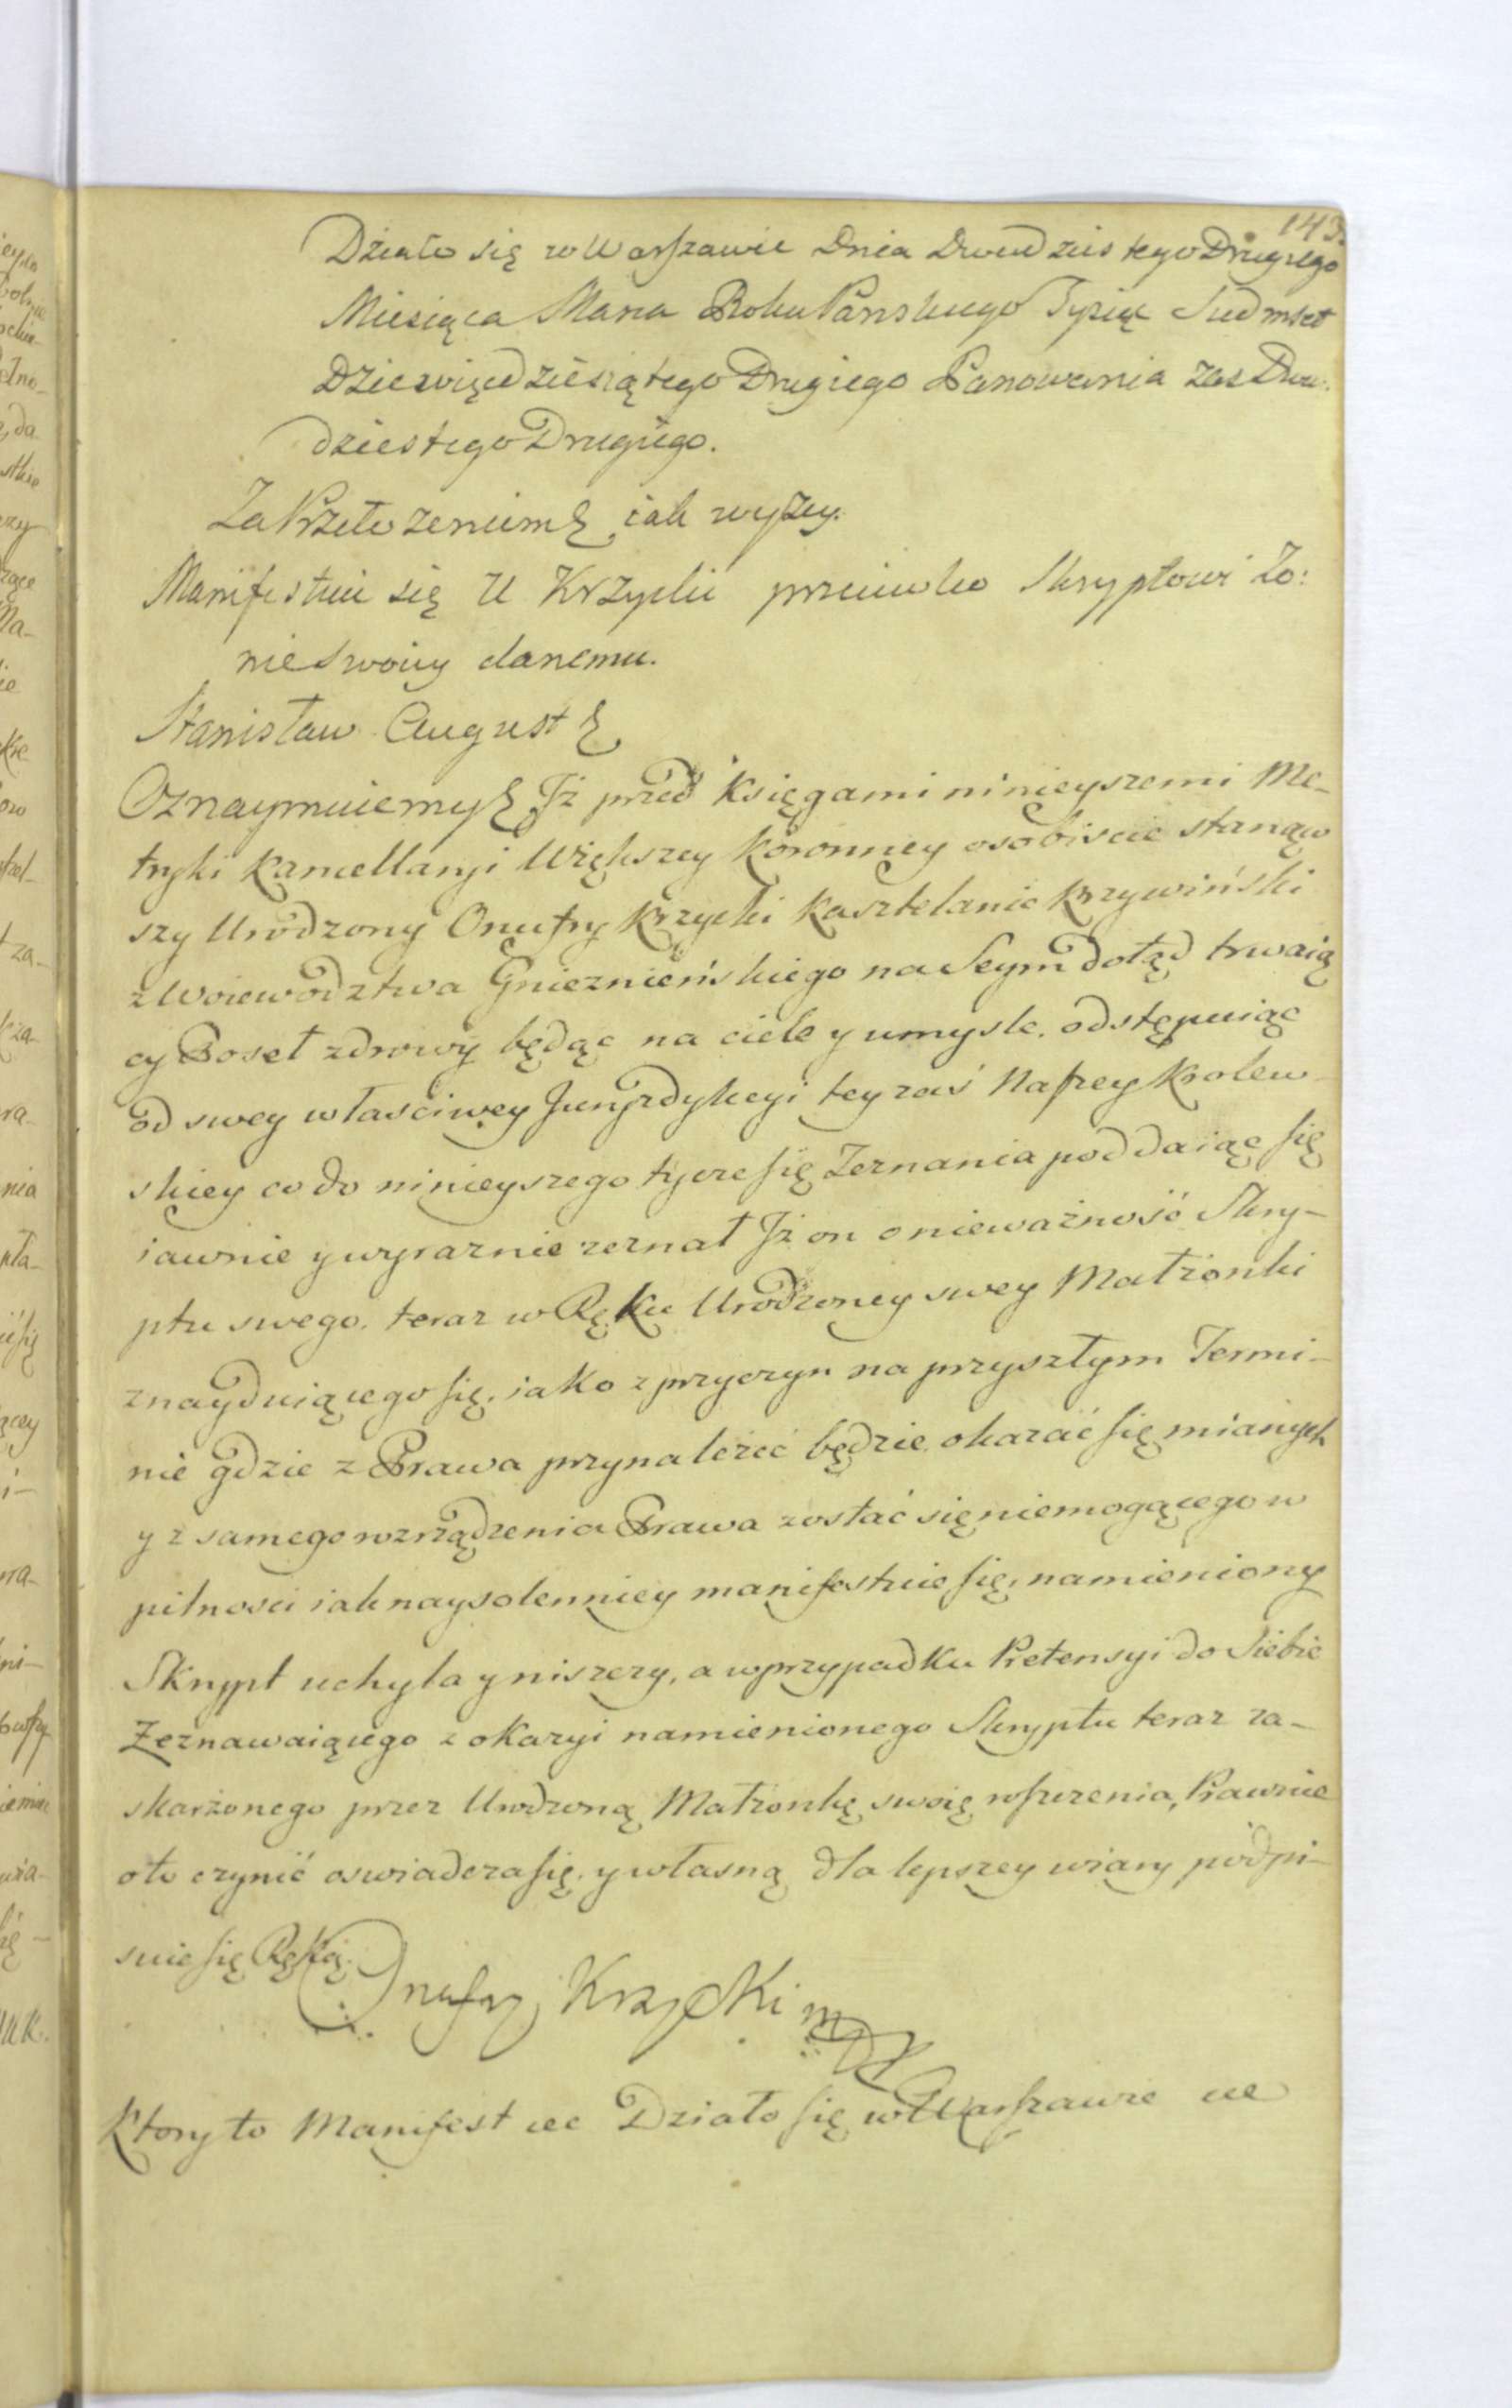 143.
Działo się w Warszawie Dnia Dwudziestego Drugiego
Miesiąca Marca Roku Pańskiego Tysiąc Siedmset
Dziewięćdziesiątego Drugiego Panowania zas Dwu-
dziestego Drugiego.
Za Przełożeniem & iak wyżey.
Manifestuie się U Krzycki przeciwko Skryptowi Żo:
nie swoiey danemu.
Stanisław August &
Oznaymuiemy & Iż przed Księgami ninieyszemi Me-
tryki Kancellaryi Większey Koronney osobiscie stanąw
szy Urodzony Onufry Krzycki Kasztelanic Krzywiński
z Woiewodztwa Gnieznieńskiego na Seym dotąd trwaią
cy Poseł zdrowy będąc na ciele y umysle. odstępuiąc
od swey własciwey Juryzdykcyi tey zaś Naszey Krolew
skiey co do ninieyszego tycze się Zeznania poddaiąc się
iawnie y wyraznie zeznał Iż on o nieważność Skry-
ptu swego. teraz w Ręku Urodzoney swey Małżonki
znayduiącego się. iako z przyczyn na przyszłym Termi-
nie gdzie z Prawa przynależeć będzie okazać się mianych
y z samego rozrządzenia Prawa zostać się niemogącego w
pilnosci iak naysolenniey manifestuie się, namieniony
Skrypt uchyla y niszczy, a w przypadku Pretensyi do Siebie
Zeznawaiącego z okazyi namienionego Skryptu teraz za-
skarżonego przez Urodzoną Małżonkę swoię wszczenia, Prawnie
oto czynić oswiadcza się. y własną dla lepszey wiary podpi-
suie się Ręką.
Onufry Krzycki mp
Ktory to Manifest &c Działo się w Warszawie &c